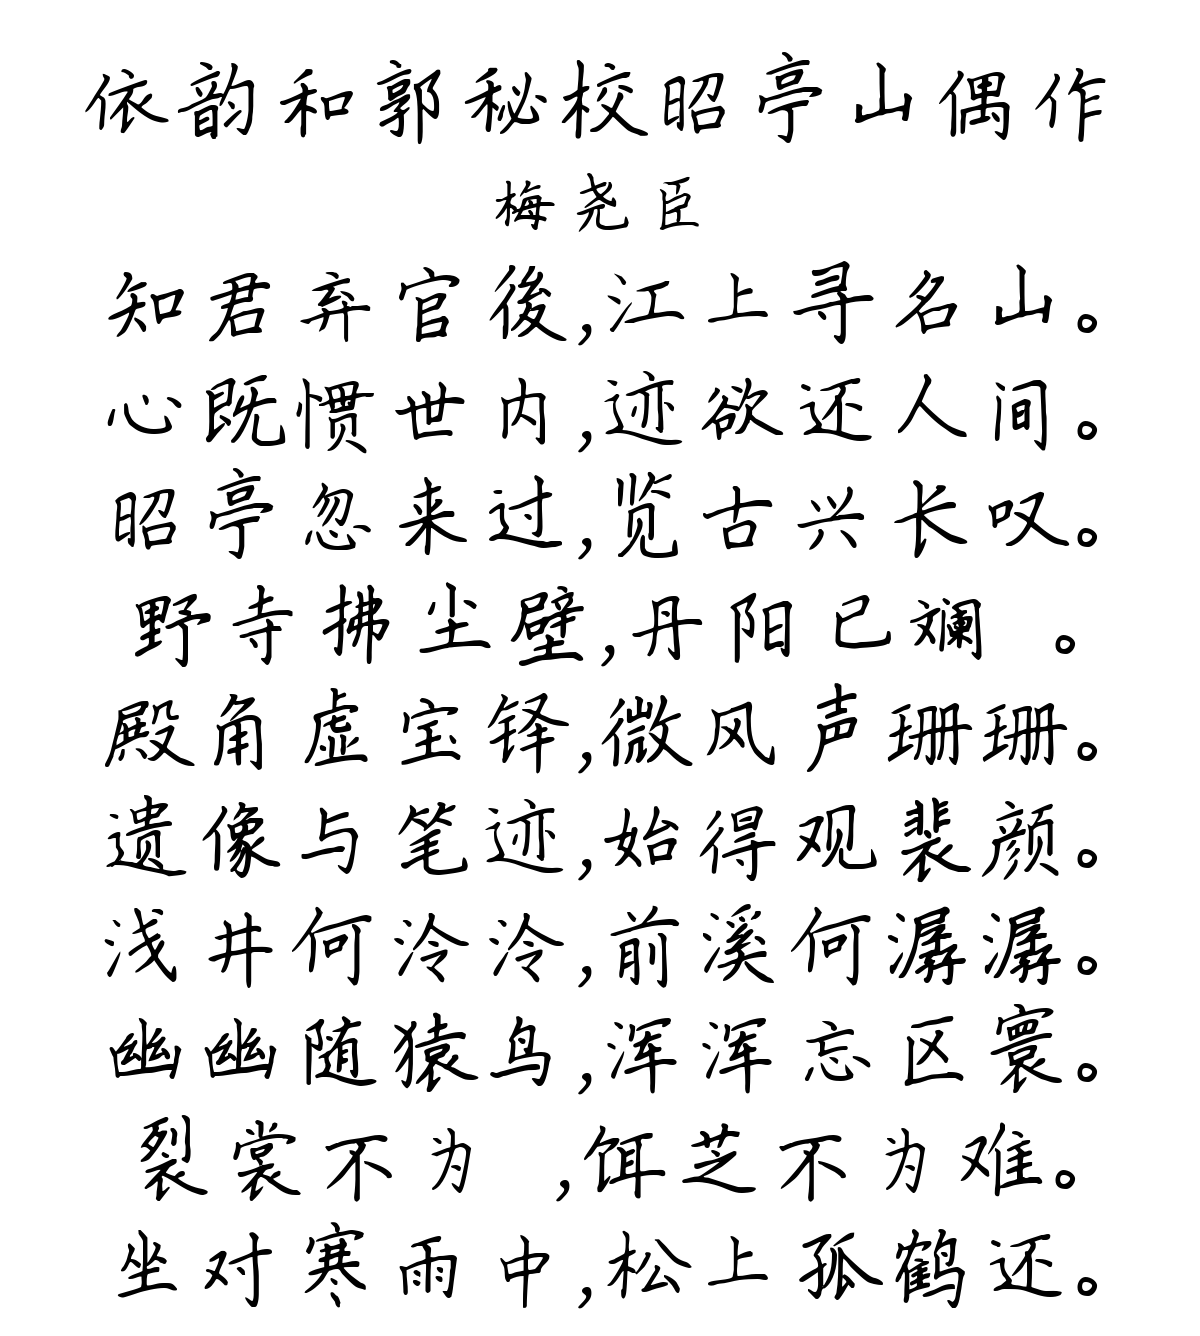 依韵和郭秘校昭亭山偶作
梅尧臣
知君弃官後,江上寻名山。
心既惯世内,迹欲还人间。
昭亭忽来过,览古兴长叹。
野寺拂尘壁,丹阳已斓 。
殿角虚宝铎,微风声珊珊。
遗像与笔迹,始得观裴颜。
浅井何泠泠,前溪何潺潺。
幽幽随猿鸟,浑浑忘区寰。
裂裳不为 ,饵芝不为难。
坐对寒雨中,松上孤鹤还。